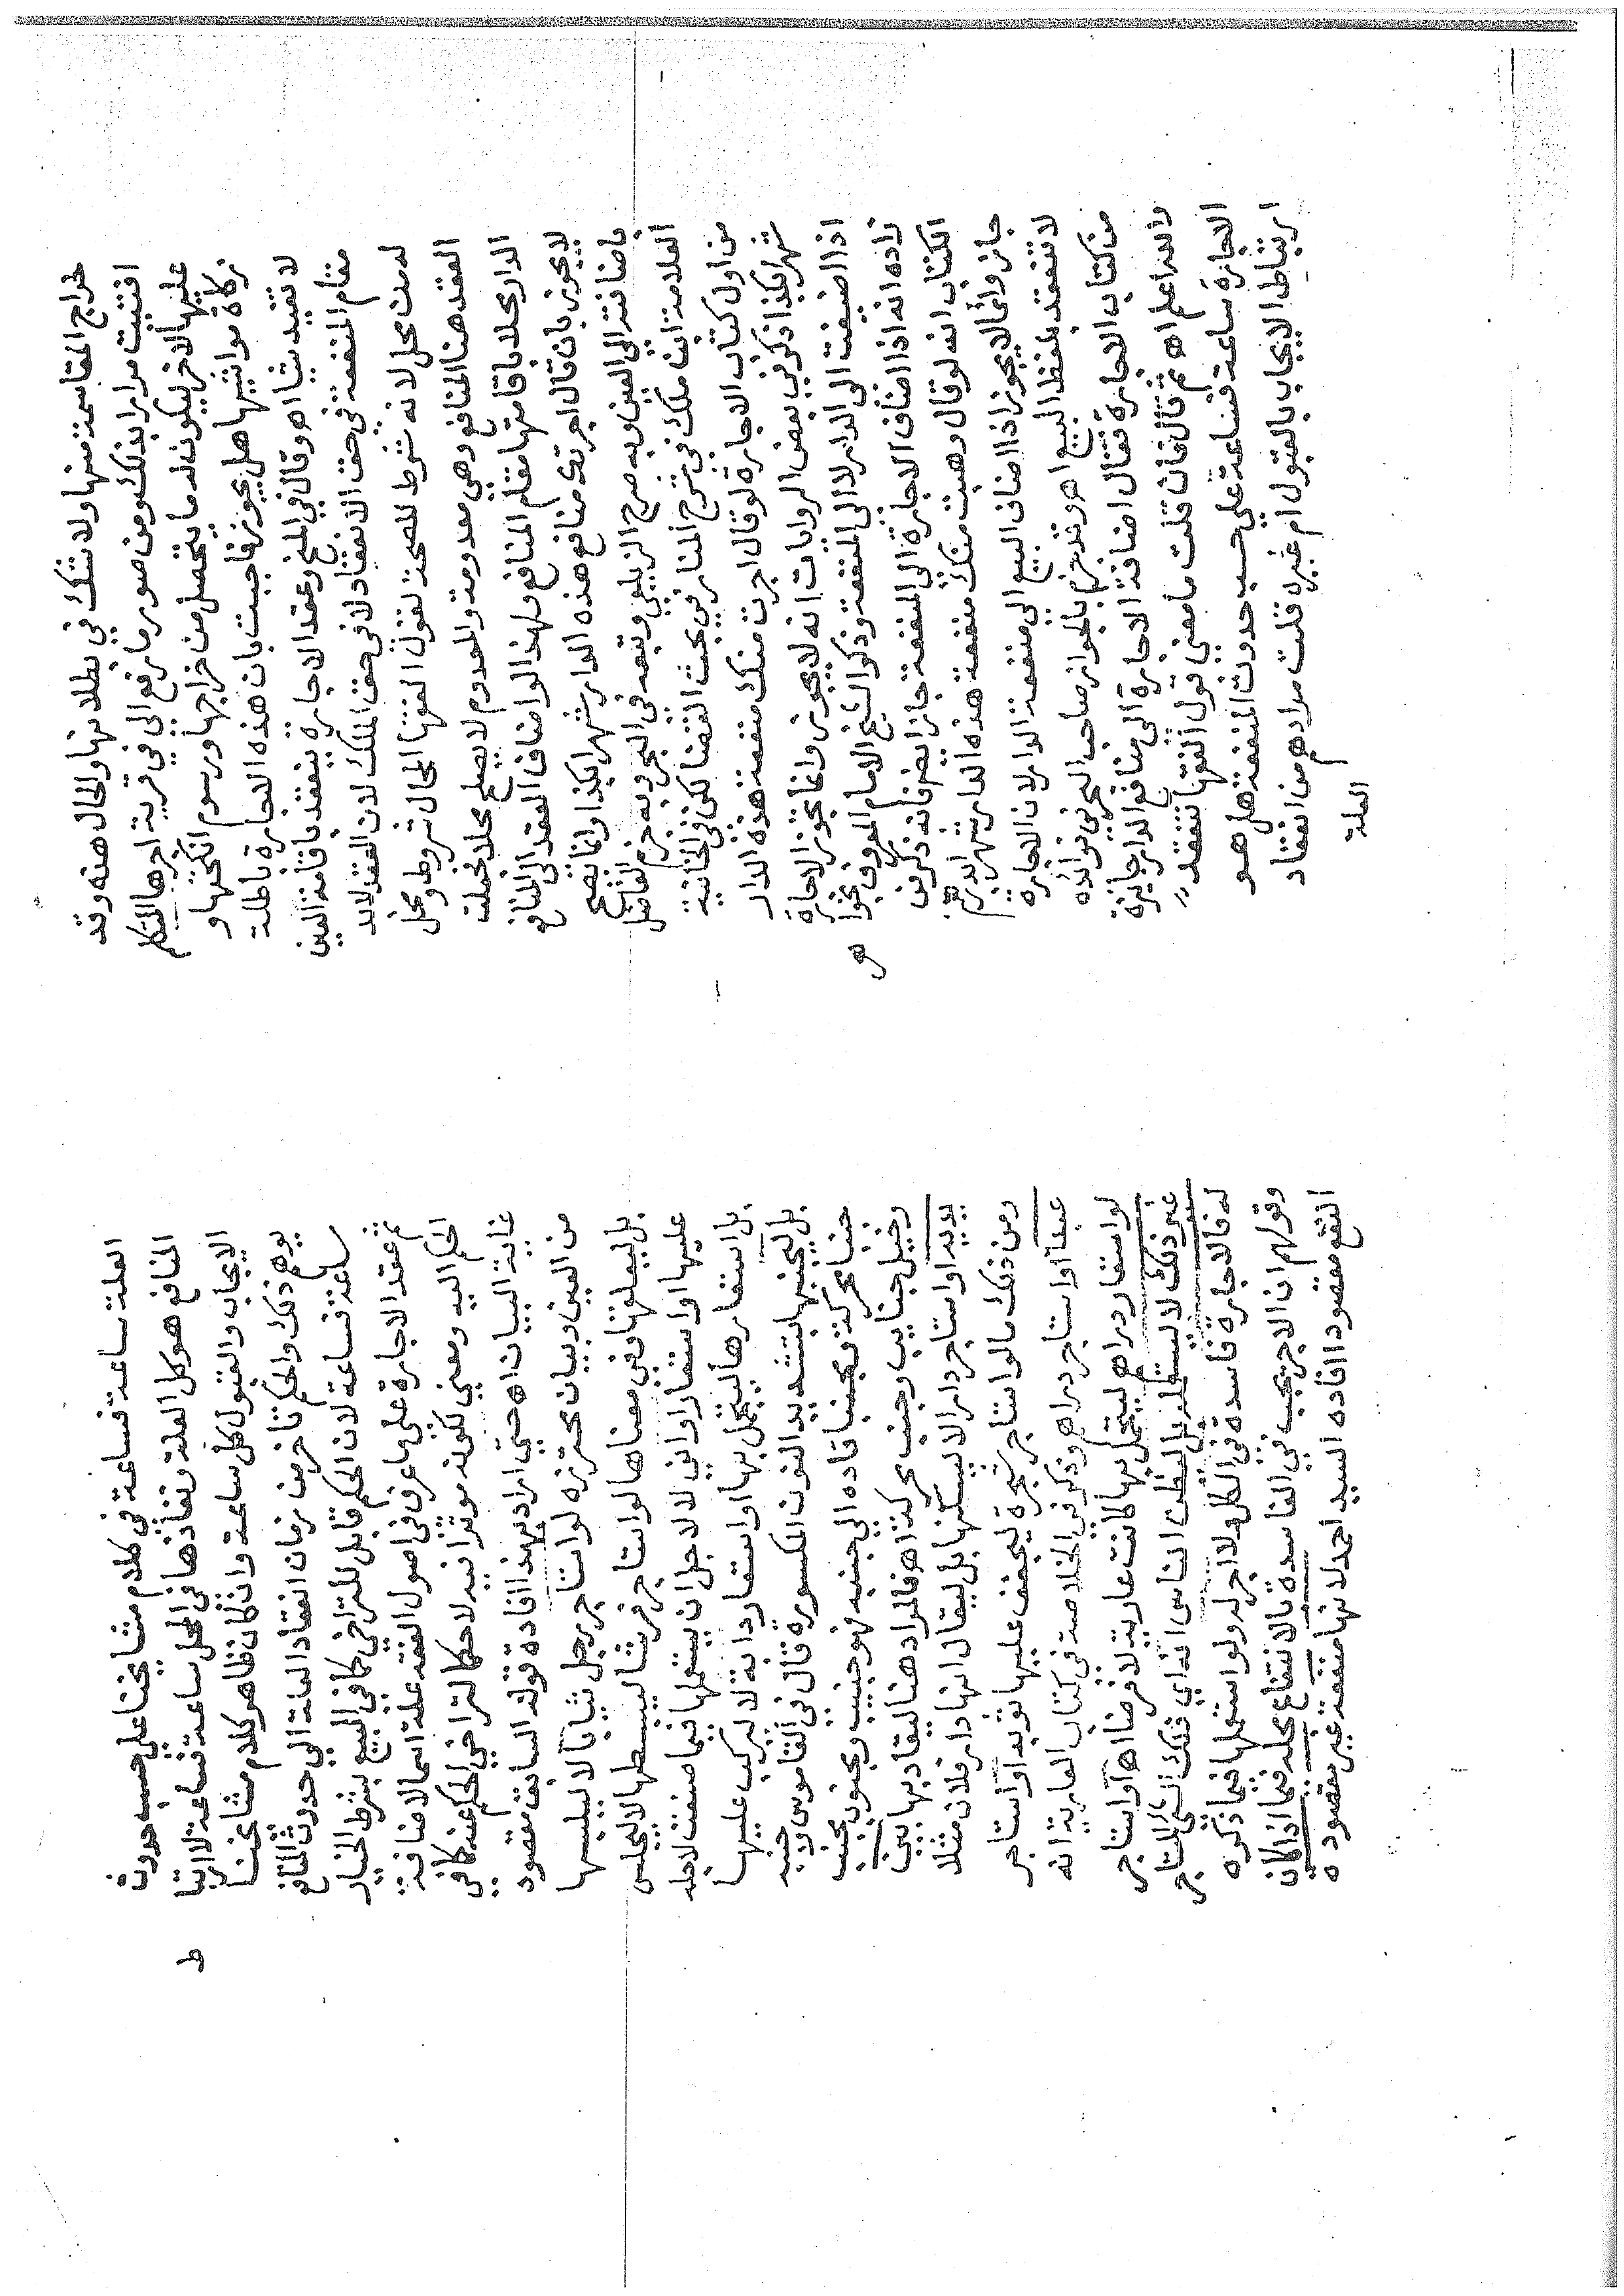 لخراج المقاسمة منها ولا شك في بطلانها والحال هذه وقد
افتيت مرارا بذلك ومن صور ما رفع الي في قرية اجرها المتكلم
عليها لاخر ليكون له ما يتحصل من خراجها ورسوم انكحتها و
زكاة مواشيها هل يجوز فاجبت بان هذه الاجارة باطلة
لا تفيد شيئا اه وقال في المنح وعقد الاجارة ينعقد باقامة العين
مقام المنفعة في حق الانعقاد لا في حق الملك لان العقد لابد
له من محل لانه شرط للصحة لقول الفقها المحال شروط ومحل
العقد هنا المنافع وهي معدومة والمعدوم لا يصلح محلا فجعلت
الدار محلا باقامتها مقام المنافع ولهذا لو اضاف العقد الى المنافع
لا يجوز بان قال اجرتك منافع هذه الدار شهرا بكذا وانما يصح
باضافته الى العين وبه صرح الزيلعي وتبعه في البحر وبه جزم الفاضل
العلامة ابن ملك في شرح المنار في بحث القضا لكن في الخانية
من اول كتاب الاجارة لو قال اجرت منك منفعة هذه الدار
شهرا بكذا ذكر في بعض الروايات انه لا يجوز وانما تجوز الاجارة
اذا اضيفت الى الدار لا الى المنفعة وذكر الشيخ الامام المعروف بخواهر
زاده انه اذا اضاف الاجارة الى المنفعة جاز ايضا فانه ذكر في
الكتاب انه لو قال وهبت منك منفعة هذه الدار شهرا بدرهم
جاز وانما لا يجوز اذا اضاف البيع الى منفعة الدار لان الاجارة
لا تنعقد بلفظ البيع اه وقد جزم بالجواز صاحب البحر في فوائده
من كتاب الاجارة فقال اضافة الاجارة الى منافع الدار جايزة
والله اعلم اه ثم قال فان قلت ما معنى قول الفقها تنعقد
الاجارة ساعة فساعة على حسب حدوث المنفعة هل هو
ارتباط الايجاب بالقبول ام غيره قلت مرادهم من انعقاد
العلة
العلة ساعة فساعة في كلام مشايخنا على حسب حدوث
المنافع هو كل العلة ونفاذها في المحل ساعة فساعة لا ارتباط
الايجاب والقبول كل ساعة وان كان ظاهر كلام مشايخنا
يوهم ذلك والحكم تاخر من زمان انعقاد العلة الى حدوث المنافع
ساعة فساعة لان الحكم قابل للتراخي كما في البيع بشرط الخيار
ثم عقد الاجارة على ما عرف في اصول الفقه علة اسما لاضافة
الحكم اليه ومعنى لكونه موثرا فيه لا حكما لتراخي الحكم عنه كما في
غاية البيان اه حتى اراد بهذا افادة قوله السابق مقصود
من العين وبيان محترزه لو استاجر رجل ثيابا لا ليلبسها
بل ليعلقها وفي معناها لو استاجر فرشا ليبسطها لا ليجلس
عليها او استعار اواني لا لاجل ان يستعملها فيما صنعت لاجله
بل استعارها ليتجمل بها او استعار دابة لا ليركب عليها
بل ليجنبها بتشديد النون المكسورة قال في القاموس وجنبه
جنبا محركة ومجنبا قاده الى جنبه فهو جنيب ومجنوب ومجنب
وخيل جنايب وجنب محركة اه فالمراد هنا ليقاد بها بين
يديه او استاجر دارا لا ليسكنها بل ليقال انها دار فلان مثلا
ومن ذلك ما لو استاجر شجرة ليجفف عليها ثوبه او استاجر
عبدا او استاجر دراهم وذكر في الخلاصة في كتاب العارية انه
لو استعار دراهم ليتجمل بها كانت عارية لا قرضا اه او استاجر
غير ذلك لا ليستعمله بل ليظن الناس انه اي ذلك الشي للمستاجر
له فالاجارة فاسدة في الكل ولا اجر له ولو استعملها فيما ذكره
وقولهم ان الاجر يجب في الفاسدة بالانتفاع محله فيما اذا كان
النفع مقصودا افاده السيد احمد لانها منفعة غير مقصودة
ط